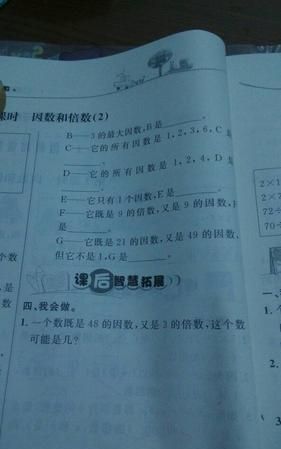 课时 因数和倍数(2)
B——3的最大因数,B是______。
C——它的所有因数是1,2,3,6,C是
______。
D——它的所有因数是1,2,4,D是
______。
E——它只有1个因数,E是______。
F——它既是9的倍数,又是9的因数,
______。
G——它既是21的因数,又是49的因数,
但它不是1,G是______。
课后智慧拓展
四、我会做。
1. 一个数既是48的因数,又是3的倍数,这个数
可能是几?
个数
是
2×1
2×
72÷
70÷
一、
1.
2.
3